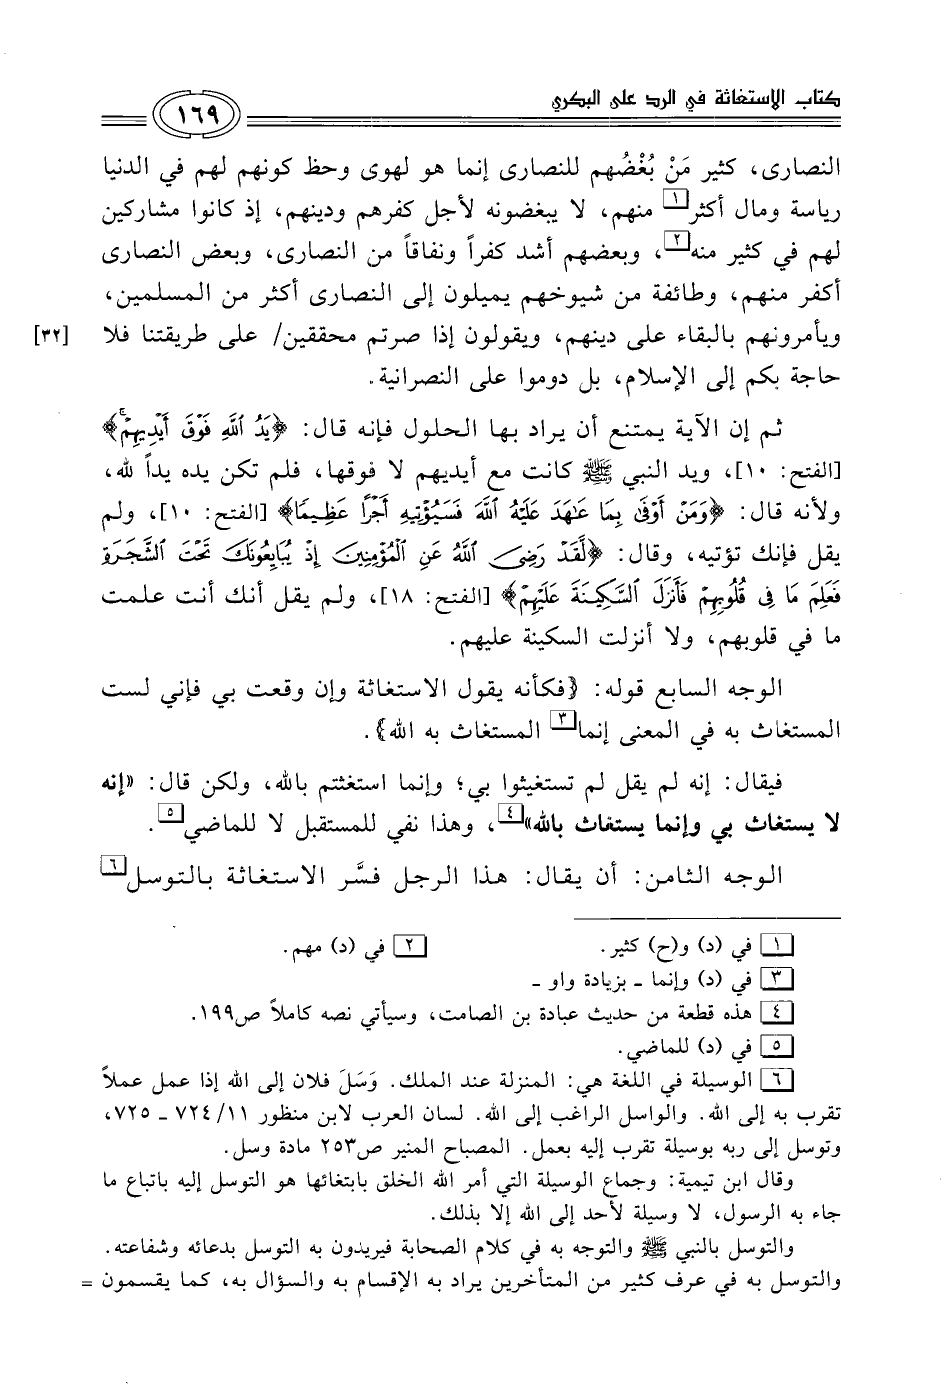 كتاب الاستغاثة في الرد على البكري
١٦٩
النصارى، كثير مَنْ بُغْضُهم للنصارى إنما هو لهوى وحظ كونهم لهم في الدنيا
رياسة ومال أكثر[١] منهم، لا يبغضونه لأجل كفرهم ودينهم، إذ كانوا مشاركين
لهم في كثير منه[٢]، وبعضهم أشد كفراً ونفاقاً من النصارى، وبعض النصارى
أكفر منهم، وطائفة من شيوخهم يميلون إلى النصارى أكثر من المسلمين،
ويأمرونهم بالبقاء على دينهم، ويقولون إذا صرتم محققين/ على طريقتنا فلا [٣٢]
حاجة بكم إلى الإسلام، بل دوموا على النصرانية.
ثم إن الآية يمتنع أن يراد بها الحلول فإنه قال: ﴿يَدُ ٱللَّهِ فَوْقَ أَيْدِيهِمْۚ﴾
[الفتح: ١٠]، ويد النبي ﷺ كانت مع أيديهم لا فوقها، فلم تكن يده يداً لله،
ولأنه قال: ﴿وَمَنْ أَوْفَىٰ بِمَا عَٰهَدَ عَلَيْهُ ٱللَّهَ فَسَيُؤْتِيهِ أَجْرًا عَظِيمًا﴾ [الفتح: ١٠]، ولم
يقل فإنك تؤتيه، وقال: ﴿لَّقَدْ رَضِىَ ٱللَّهُ عَنِ ٱلْمُؤْمِنِينَ إِذْ يُبَايِعُونَكَ تَحْتَ ٱلشَّجَرَةِ
فَعَلِمَ مَا فِى قُلُوبِهِمْ فَأَنزَلَ ٱلسَّكِينَةَ عَلَيْهِمْ﴾ [الفتح: ١٨]، ولم يقل أنك أنت علمت
ما في قلوبهم، ولا أنزلت السكينة عليهم.
الوجه السابع قوله: {فكأنه يقول الاستغاثة وإن وقعت بي فإني لست
المستغاث به في المعنى إنما[٣] المستغاث به الله}.
فيقال: إنه لم يقل لم تستغيثوا بي؛ وإنما استغثتم بالله، ولكن قال: «إنه
لا يستغاث بي وإنما يستغاث بالله»[٤]، وهذا نفي للمستقبل لا للماضي[٥].
الوجه الثامن: أن يقال: هذا الرجل فسَّر الاستغاثة بالتوسل[٦]
[١] في (د) و(ح) كثير. [٢] في (د) مهم.
[٣] في (د) وإنما ـ بزيادة واو ـ
[٤] هذه قطعة من حديث عبادة بن الصامت، وسيأتي نصه كاملاً ص١٩٩.
[٥] في (د) للماضي.
[٦] الوسيلة في اللغة هي: المنزلة عند الملك. وَسَلَ فلان إلى الله إذا عمل عملاً
تقرب به إلى الله. والواسل الراغب إلى الله. لسان العرب لابن منظور ١١/ ٧٢٤ ـ ٧٢٥،
وتوسل إلى ربه بوسيلة تقرب إليه بعمل. المصباح المنير ص٢٥٣ مادة وسل.
وقال ابن تيمية: وجماع الوسيلة التي أمر الله الخلق بابتغائها هو التوسل إليه باتباع ما
جاء به الرسول، لا وسيلة لأحد إلى الله إلا بذلك.
والتوسل بالنبي ﷺ والتوجه به في كلام الصحابة فيريدون به التوسل بدعائه وشفاعته.
والتوسل به في عرف كثير من المتأخرين يراد به الإقسام به والسؤال به، كما يقسمون =